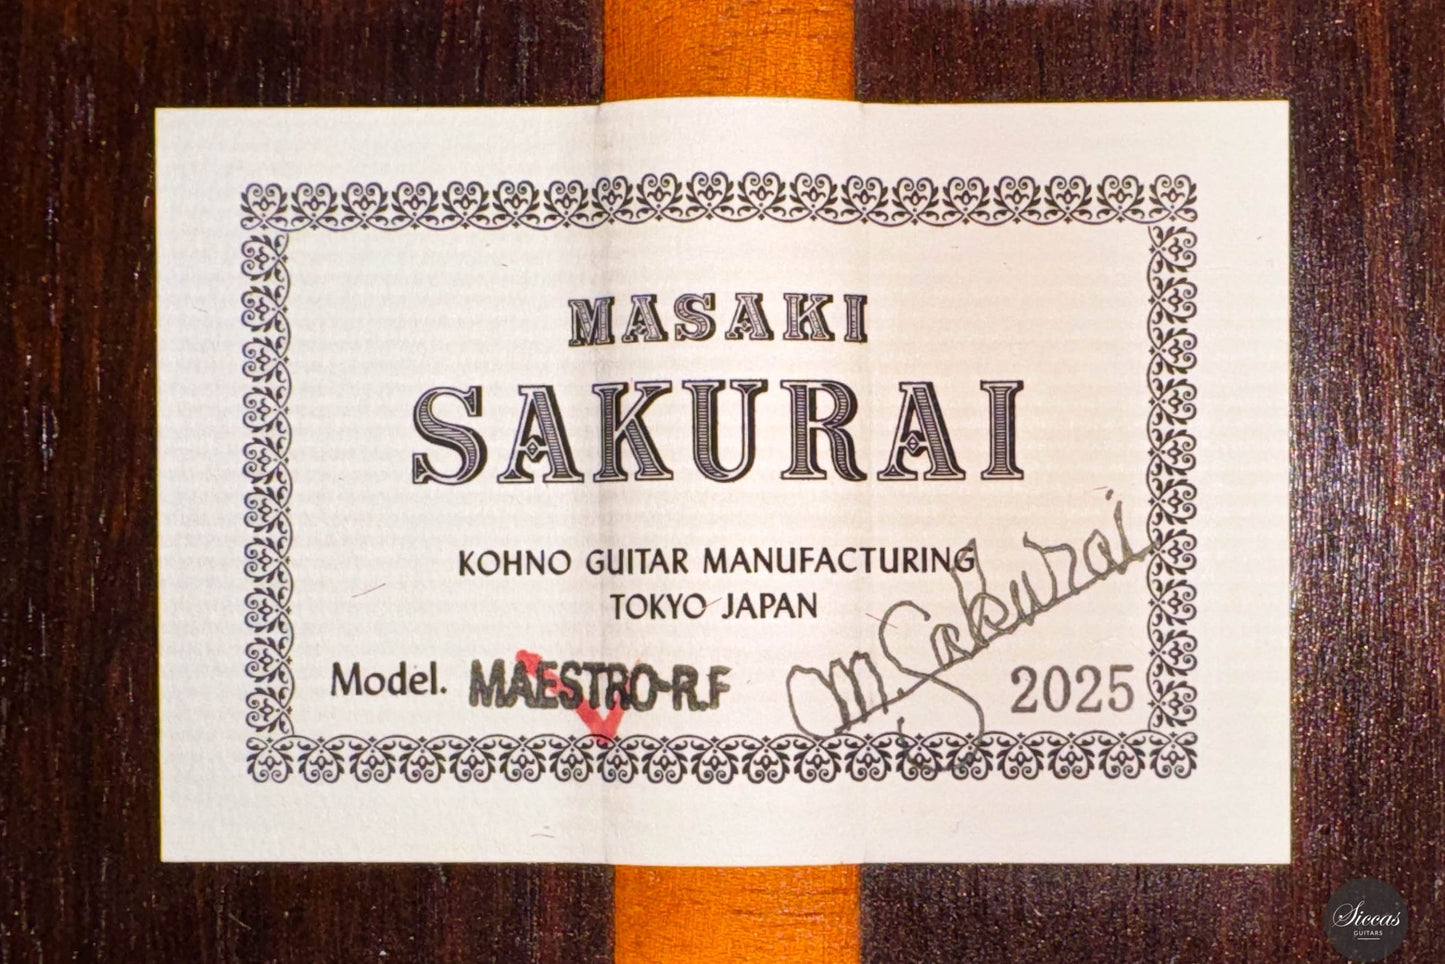 MASAKI
SAKURAI
KOHNO GUITAR MANUFACTURING
TOKYO JAPAN
Model. MAESTRO-R.F
M. Sakurai
2025
Siccas
GUITARS